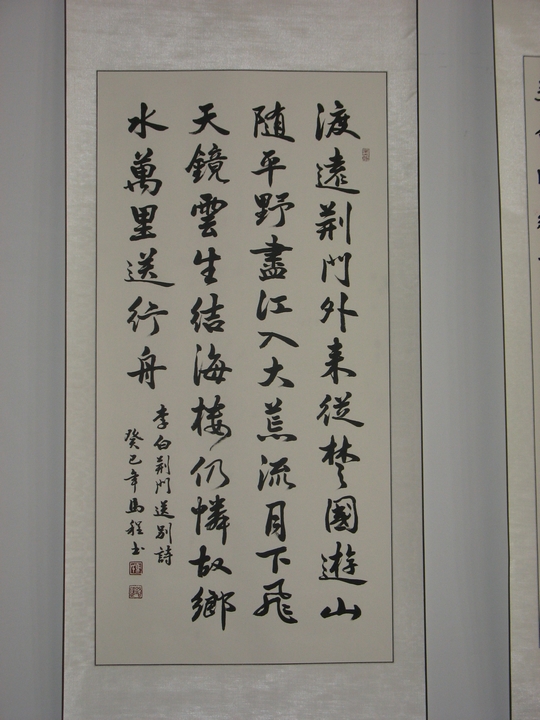 渡遠荆門外来從楚國遊山
随平野盡江入大荒流月下飛
天鏡雲生結海樓仍憐故鄉
水萬里送行舟
李白荆門送別詩
癸巳年馬程書